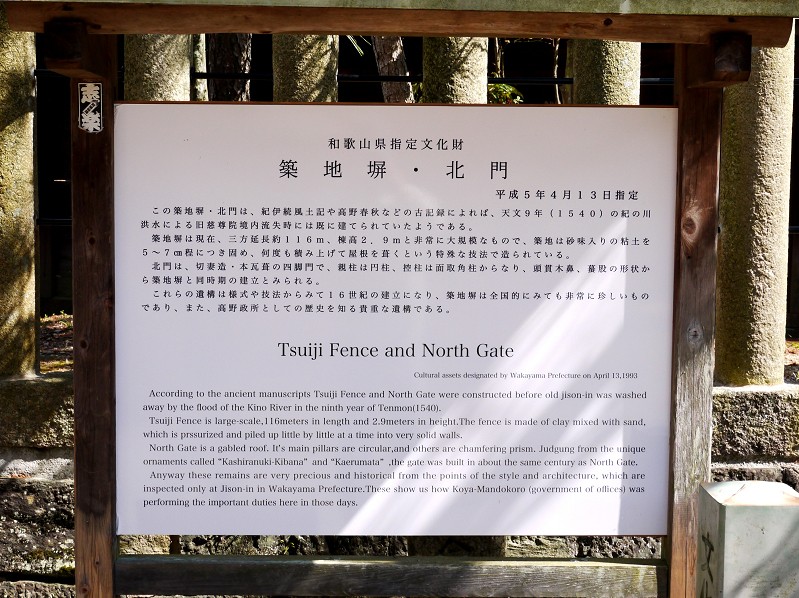 和歌山県指定文化財
築地塀・北門
平成5年4月13日指定
この築地塀・北門は、紀伊続風土記や高野春秋などの古記録によれば、天文9年（1540）の紀の川
洪水による旧慈尊院境内流失時には既に建てられていたようである。
築地塀は現在、三方延長約116m、棟高2.9mと非常に大規模なもので、築地は砂味入りの粘土を
5～7㎝程につき固め、何度も積み上げて屋根を葺くという特殊な技法で造られている。
北門は、切妻造・本瓦葺の四脚門で、親柱は円柱、控柱は面取角柱からなり、頭貫木鼻、蟇股の形状か
ら築地塀と同時期の建立とみられる。
これらの遺構は様式や技法からみて16世紀の建立になり、築地塀は全国的にみても非常に珍しいもの
であり、また、高野政所としての歴史を知る貴重な遺構である。
Tsuiji Fence and North Gate
Cultural assets designated by Wakayama Prefecture on April 13,1993
According to the ancient manuscripts Tsuiji Fence and North Gate were constructed before old jison-in was washed
away by the flood of the Kino River in the ninth year of Tenmon(1540).
Tsuiji Fence is large-scale,116meters in length and 2.9meters in height.The fence is made of clay mixed with sand,
which is prssurized and piled up little by little at a time into very solid walls.
North Gate is a gabled roof. It's main pillars are circular,and others are chamfering prism. Judgung from the unique
ornaments called "Kashiranuki-Kibana" and "Kaerumata" ,the gate was built in about the same century as North Gate.
Anyway these remains are very precious and historical from the points of the style and architecture, which are
inspected only at Jison-in in Wakayama Prefecture.These show us how Koya-Mandokoro (government of offices) was
performing the important duties here in those days.